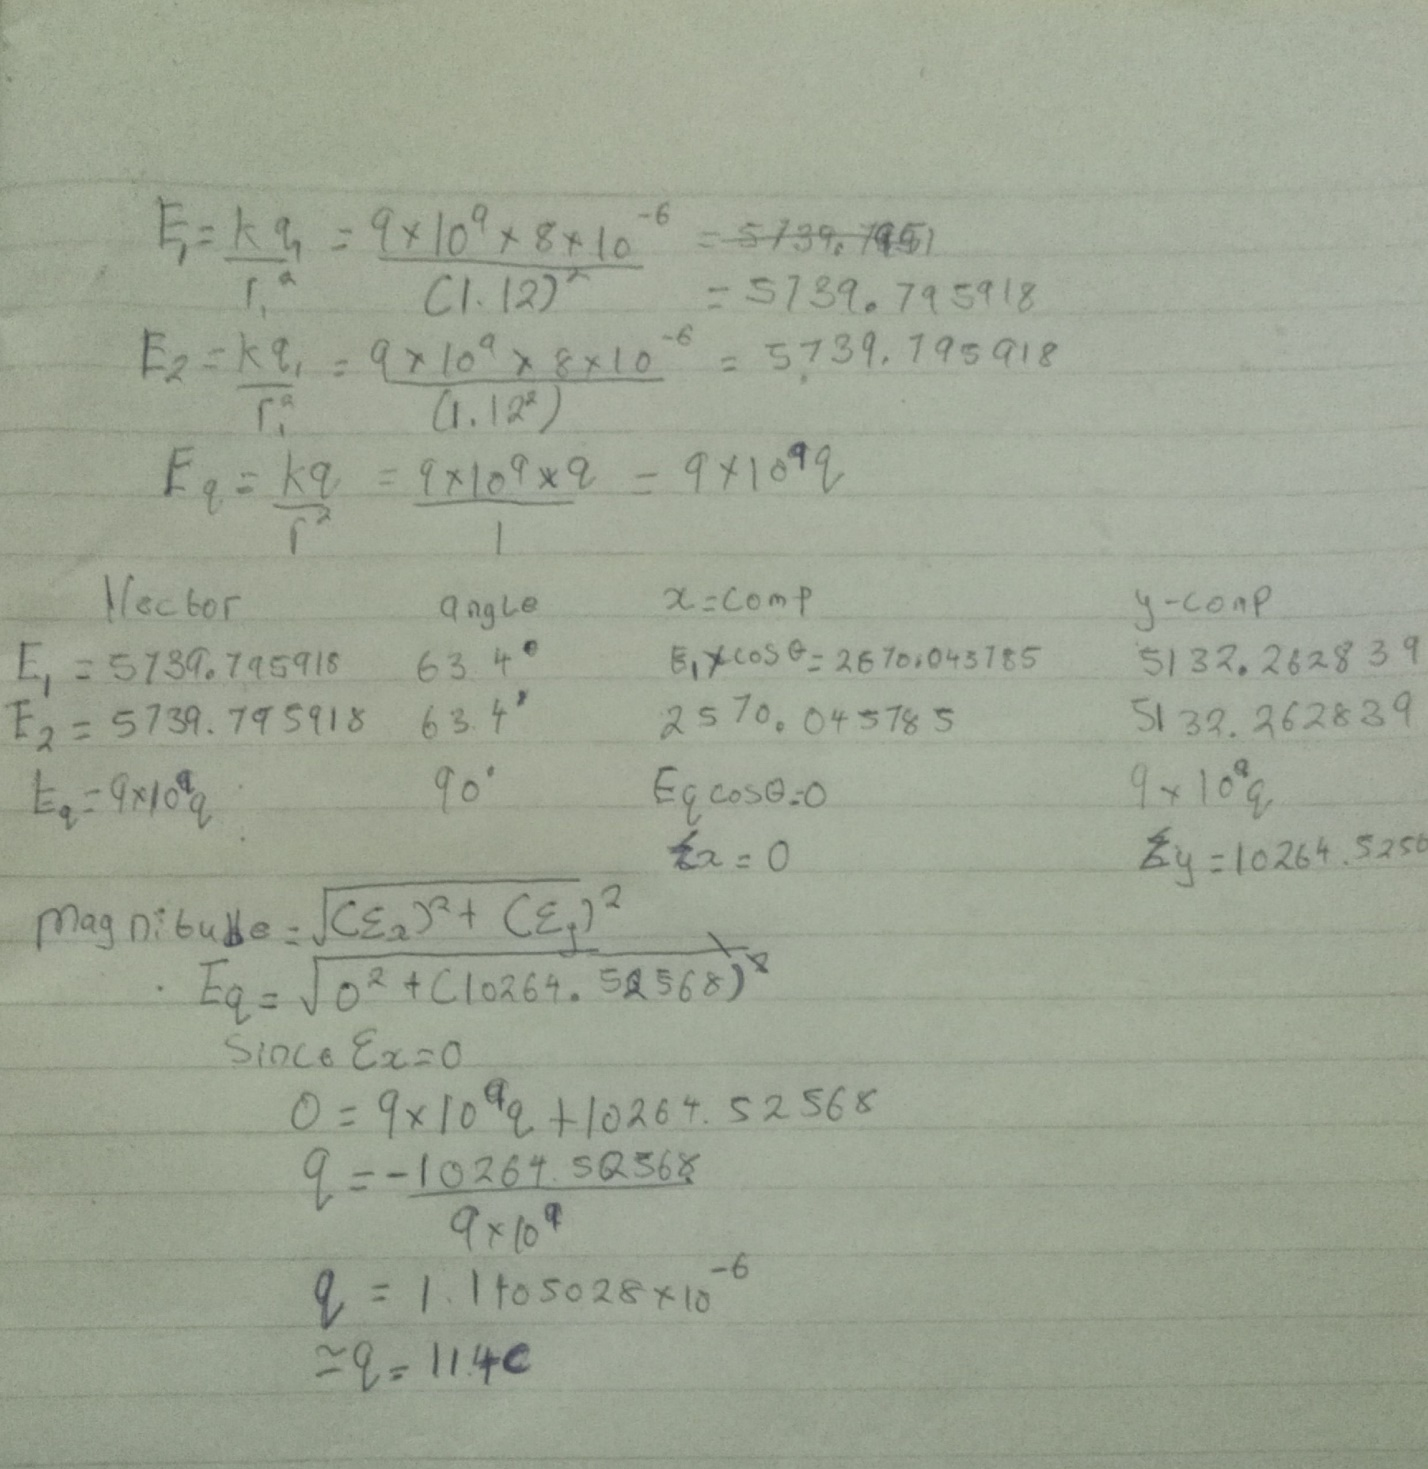 E₁ = kq₁/r₁² = 9×10⁹×8×10⁻⁶/(1.12)² = 5739.7951
= 5739.795918
E₂ = kq₁/r₁² = 9×10⁹×8×10⁻⁶/(1.12²) = 5739.795918
Eq = kq/r² = 9×10⁹×q/1 = 9×10⁹q
Vector angle x=comp y-comp
E₁ = 5739.795918 63.4° E₁×cosθ=2570.045785 5132.262839
E₂ = 5739.795918 63.4° 2570.045785 5132.262839
Eq=9×10⁹q 90° Eqcosθ=0 9×10⁹q
Σx=0 Σy=10264.5256
Magnitude=√(Σx)²+(Σy)²
Eq=√0²+(10264.52568)²
Since Σx=0
0=9×10⁹q+10264.52568
q=-10264.52568/9×10⁹
q = 1.1405028×10⁻⁶
≃q=11.4C